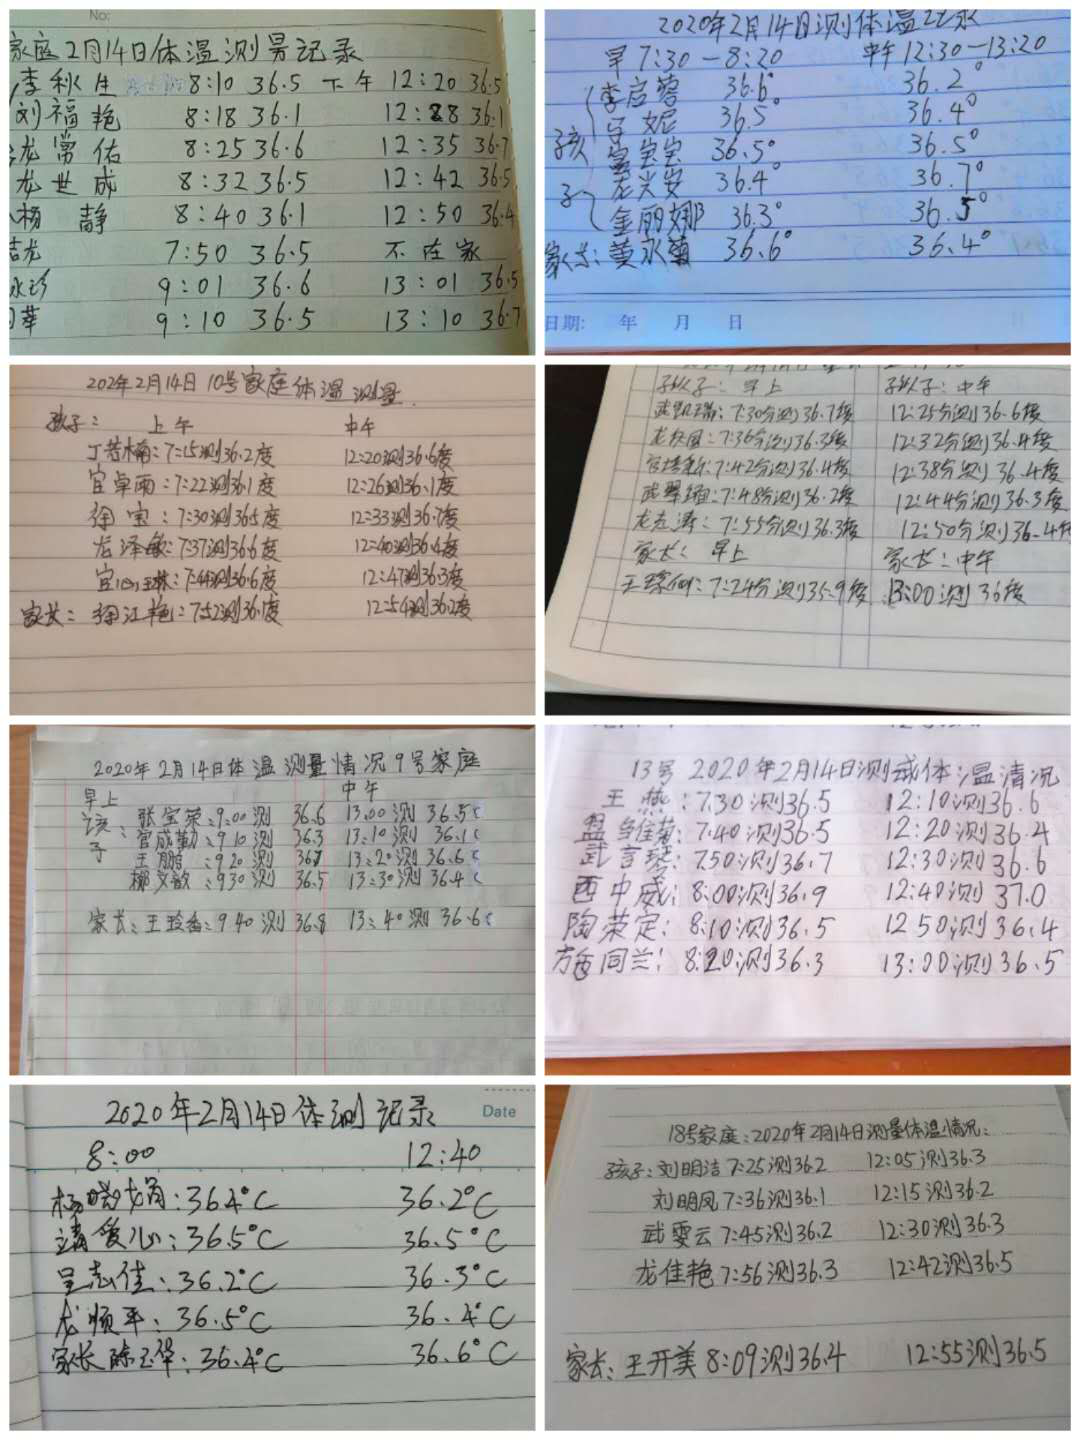 No:
家庭2月14日体温测量记录
李秋生 8:10 36.5 下午 12:20 36.5
刘福艳 8:18 36.1 12:28 36.1
龙常佑 8:25 36.6 12:35 36.7
龙世成 8:32 36.5 12:42 36.5
杨静 8:40 36.1 12:50 36.4
龙 7:50 36.5 不在家
9:01 36.6 13:01 36.5
9:10 36.5 13:10 36.7
2020年2月14日测体温记录
早 7:30-8:20 中午 12:30-13:20
李启蓉 36.6° 36.2°
妮 36.5° 36.4°
宝宝 36.5° 36.5°
龙兴安 36.4° 36.7°
金丽娜 36.3° 36.5°
孩子
家长:黄永菊 36.6° 36.4°
日期: 年 月 日
202年2月14日10号家庭体温测量
孩子: 上午 中午
丁若楠:7:15测36.2度 12:20测36.6度
官卓雨:7:22测36.1度 12:26测36.1度
徐宝:7:30测36.5度 12:33测36.7度
龙泽敏:7:37测36.6度 12:40测36.4度
7:44测36.6度 12:47测36.3度
家长:徐江艳:7:52测36.1度 12:54测36.2度
孩子:早上 孩子:中午
7:30分测36.7度 12:25分测36.6度
7:36分测36.3度 12:32分测36.4度
7:42分测36.4度 12:38分测36.4度
7:48分测36.2度 12:44分测36.3度
龙志涛:7:55分测36.3度 12:50分测36.4
家长:早上 家长:中午
王琼仙:7:24分测35.9度 13:00测36度
2020年2月14日体温测量情况9号家庭
早上 中午
孩子:张宝荣:9:00测 36.6 13:00测 36.5℃
官成勤:9 10测 36.3 13:10测 36.1℃
王鹏:9 20测 13:20测 36.6℃
柳文敏:9 30测 36.5 13:30测 36.4℃
家长:王玲香:9 40测 36.8 13:40测 36.6℃
13号 2020年2月14日测试体温情况
王燕:7:30测36.5 12:10测36.6
7:40测36.5 12:20测36.4
武言琴:7:50测36.7 12:30测36.6
西中威:8:00测36.9 12:40测37.0
陶荣定:8:10测36.5 12 50测36.4
方同兰:8:20测36.3 13:00测36.5
2020年2月14日体测记录 Date
8:00 12:40
36.4°C 36.2°C
爱心:36.5°C 36.5°C
呈志佳:36.2°C 36.3°C
龙顺平:36.5°C 36.4°C
家长陈玉华:36.4°C 36.6°C
18号家庭:2020年2月14日测量体温情况:
孩子:刘明洁 7:25测36.2 12:05测36.3
刘明凤 7:36测36.1 12:15测36.2
武雯云 7:45测36.2 12:30测36.3
龙佳艳 7:56测36.3 12:42测36.5
家长:王开美 8:09测36.4 12:55测36.5